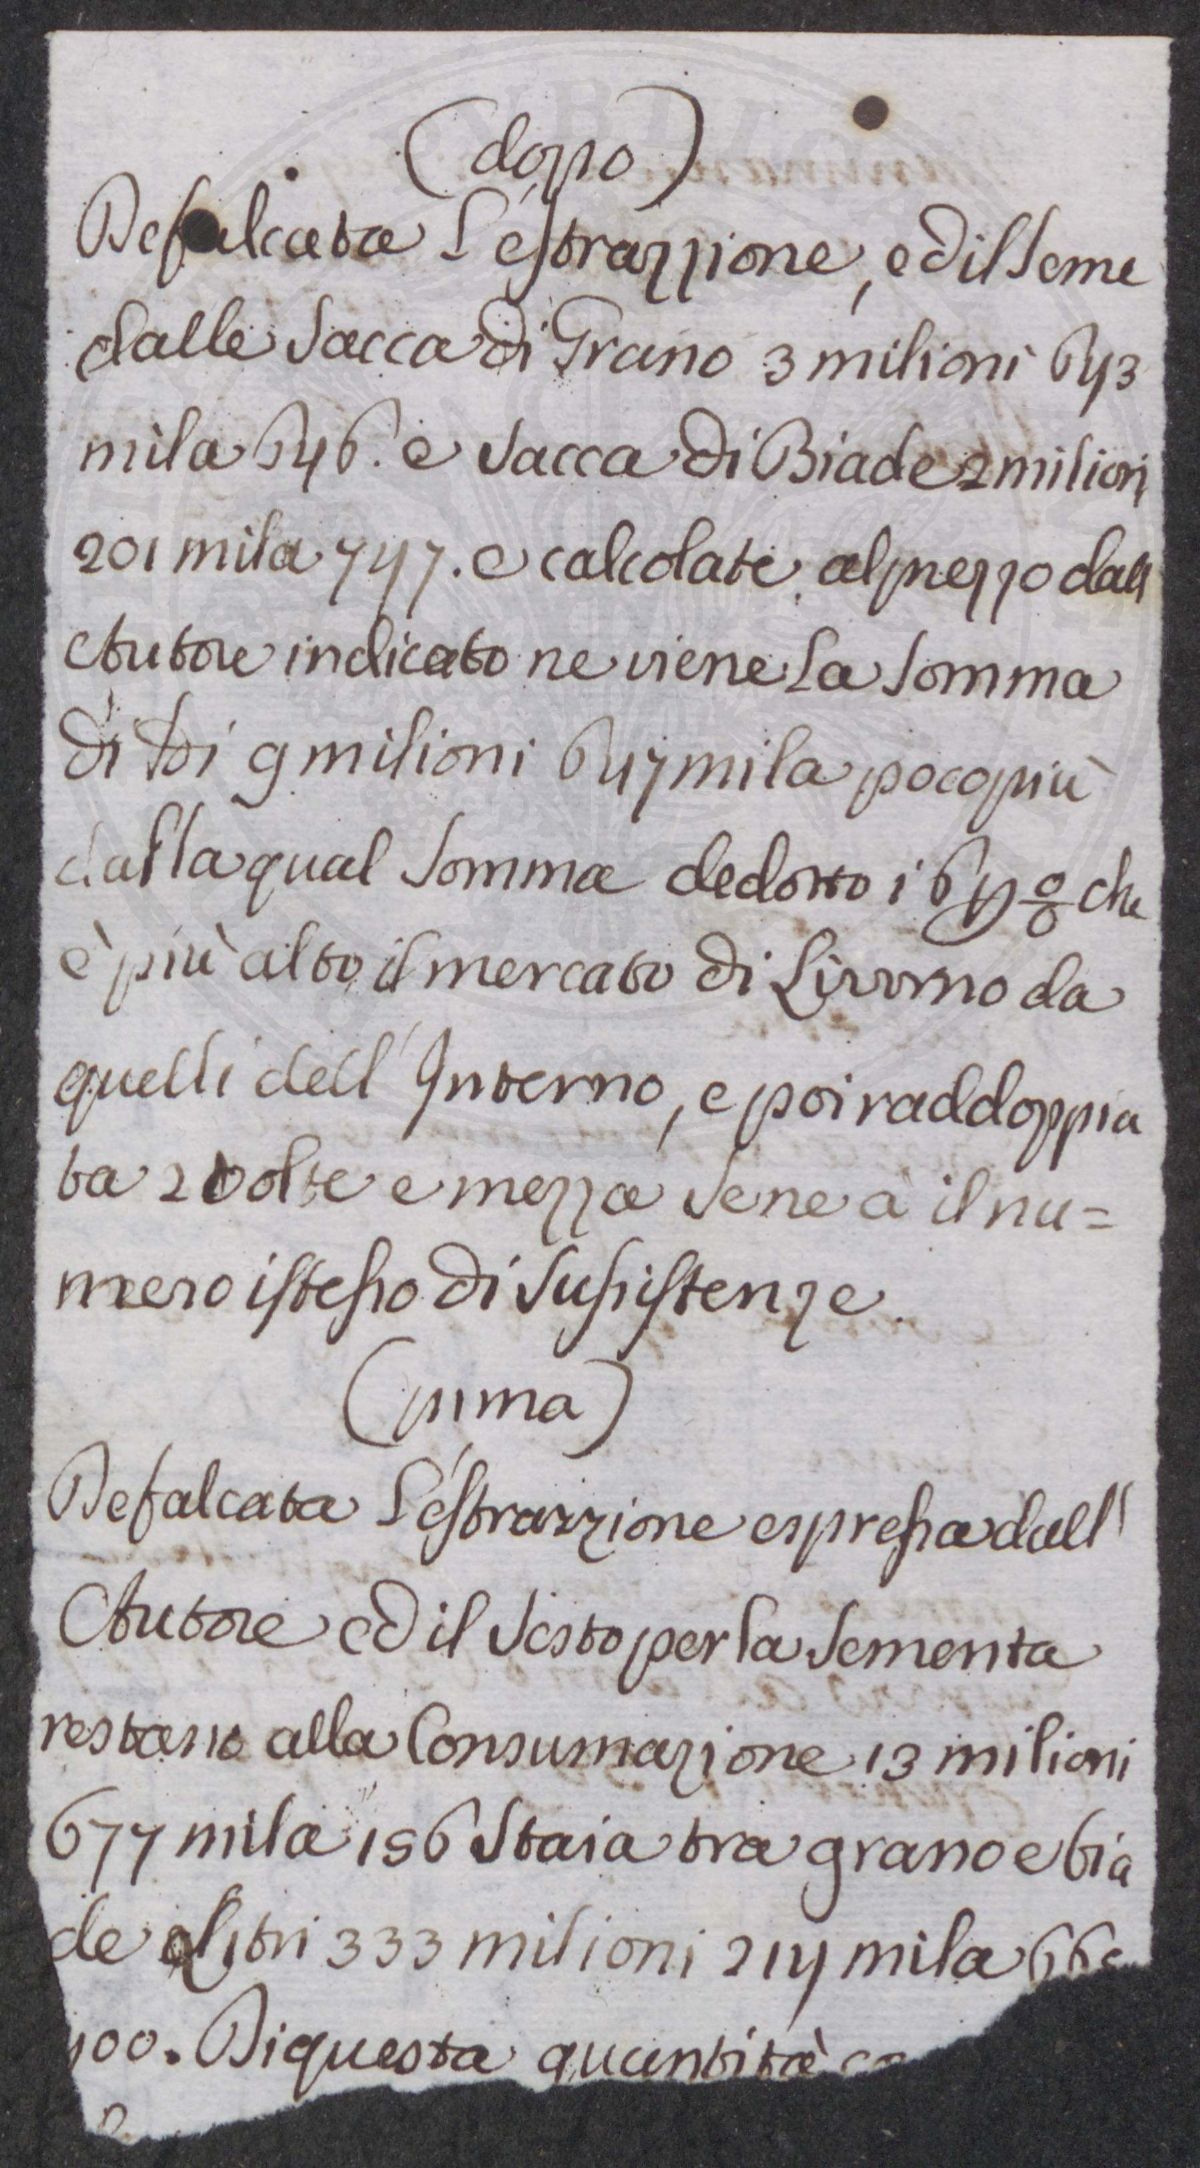 (dopo)
Defalcata L'estrazzione, ed il Seme
dalle Sacca di Grano 3 milioni 643
mila 646. e Sacca di Biade 2 milioni
201 mila 747. e calcolate al prezzo dall
Autore indicato ne viene La Somma
di 9 milioni 647 mila poco più
dalla qual Somma dedotto i che
è più alto il mercato di Livorno da
quelli dell' Interno, e poi raddoppia
ta 2 volte e mezza Se ne à il nu=
mero istesso di Susistenze.
(prima)
Defalcata L'estrazzione espressa dall'
Autore ed il Sesto per la Sementa
restano alla Consumazione 13 milioni
677 mila 156 Staia tra grano e bia
de Litri 333 milioni 214 mila
400. Di questa quantità